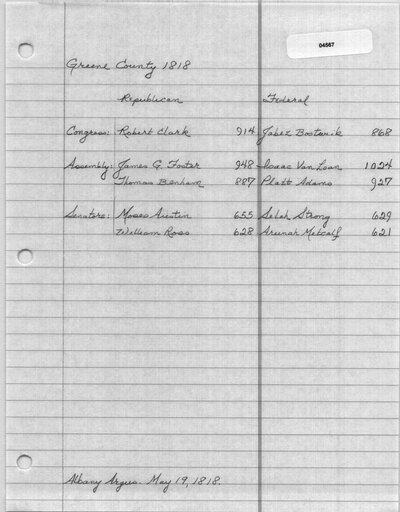 04567
Greene County 1818
Republican Federal
Congress: Robert Clark 914 Jabez Bostwik 868
Assembly: James G. Foster 948 Isaac Van Loan 1024
Thomas Benham 887 Platt Adams 927
Senators: Moses Austin 655 Selah Strong 629
William Ross 628 Arunah Metcalf 621
Albany Argus. May 19, 1818.